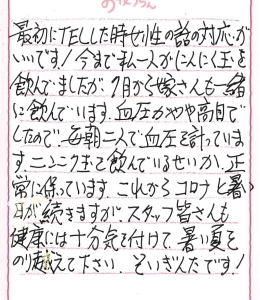 最初にTELした時女性の話の対応が
いいです！今まで私一人がにんにく玉を
飲んでましたが、7月から嫁さんも一緒
に飲んでいます。血圧がやや高目で
したので、毎朝二人で血圧を計っていま
す ニンニク玉を飲んでいるせいか、正
常に保っています。これからコロナと暑い
日が続きますが、スタッフ皆さんも
健康には十分気を付けて、暑い夏を
のり越えて下さい。